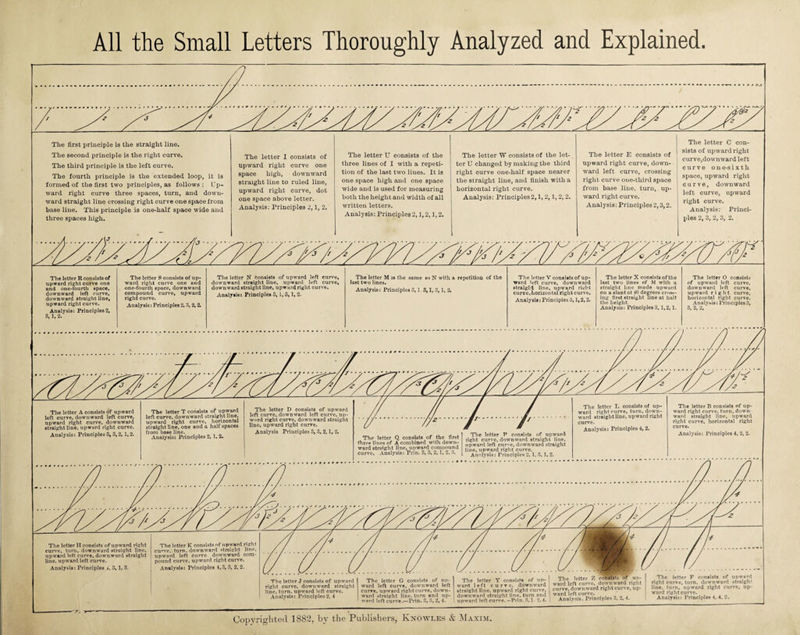 All the Small Letters Thoroughly Analyzed and Explained.
The first principle is the straight line.
The second principle is the right curve.
The third principle is the left curve.
The fourth principle is the extended loop, it is
formed of the first two principles, as follows: Up-
ward right curve three spaces, turn, and down-
ward straight line crossing right curve one space from
base line. This principle is one-half space wide and
three spaces high.
The letter I consists of
upward right curve one
space high, downward
straight line to ruled line,
upward right curve, dot
one space above letter.
Analysis: Principles 2, 1, 2.
The letter U consists of the
three lines of I with a repeti-
tion of the last two lines. It is
one space high and one space
wide and is used for measuring
both the height and width of all
written letters.
Analysis: Principles 2, 1, 2, 1, 2.
The letter W consists of the let-
ter U changed by making the third
right curve one-half space nearer
the straight line, and finish with a
horizontal right curve.
Analysis: Principles 2, 1, 2, 1, 2, 2.
The letter E consists of
upward right curve, down-
ward left curve, crossing
right curve one-third space
from base line, turn, up-
ward right curve.
Analysis: Principles 2, 3, 2.
The letter C con-
sists of upward right
curve, downward left
curve one-sixth
space, upward right
curve, downward
left curve, upward
right curve.
Analysis: Princi-
ples 2, 3, 2, 3, 2.
The letter R consists of
upward right curve one
and one-fourth space,
downward left curve,
downward straight line,
upward right curve.
Analysis: Principles 2,
3, 1, 2.
The letter S consists of up-
ward right curve one and
one-fourth space, downward
compound curve, upward
right curve.
Analysis: Principles 2, 3, 2, 2.
The letter N consists of upward left curve,
downward straight line, upward left curve,
downward straight line, upward right curve.
Analysis: Principles 3, 1, 3, 1, 2.
The letter M is the same as N with a repetition of the
last two lines.
Analysis: Principles 3, 1, 3, 1, 3, 1, 2.
The letter V consists of up-
ward left curve, downward
straight line, upward right
curve, horizontal right curve.
Analysis: Principles 3, 1, 2, 2.
The letter X consists of the
last two lines of M with a
straight line made upward
on a slant of degrees cross-
ing first straight line at half
the height.
Analysis: Principles 3, 1, 2, 1.
The letter O consists
of upward left curve,
downward left curve,
upward right curve,
horizontal right curve.
Analysis: Principles 3,
3, 2, 2.
The letter A consists of upward
left curve, downward left curve,
upward right curve, downward
straight line, upward right curve.
Analysis: Principles 3, 3, 2, 1, 2.
The letter T consists of upward
left curve, downward straight line,
upward right curve, horizontal
straight line, one and a half spaces
from base line.
Analysis: Principles 2, 1, 2.
The letter D consists of upward
left curve, downward left curve, up-
ward right curve, downward straight
line, upward right curve.
Analysis: Principles 3, 3, 2, 1, 2.
The letter Q consists of the first
three lines of A combined with down-
ward straight line, upward compound
curve. Analysis: Prin. 3, 3, 2, 1, 2, 3.
The letter P consists of upward
right curve, downward straight line,
upward left curve, downward straight
line, upward right curve.
Analysis: Principles 2, 1, 3, 1, 2.
The letter L consists of up-
ward right curve, turn, down-
ward straight line, upward right
curve.
Analysis: Principles 4, 2.
The letter B consists of up-
ward right curve, turn, down-
ward straight line, upward
right curve, horizontal right
curve.
Analysis: Principles 4, 2, 2.
The letter H consists of upward right
curve, turn, downward straight line,
upward left curve, downward straight
line, upward left curve.
Analysis: Principles 4, 3, 1, 2.
The letter K consists of upward right
curve, turn, downward straight line,
upward left curve, downward com-
pound curve, upward right curve.
Analysis: Principles 4, 3, 3, 2, 2.
The letter J consists of upward
right curve, downward straight
line, turn, upward left curve.
Analysis: Principles 2, 4
The letter G consists of up-
ward left curve, downward left
curve, upward right curve, down-
ward straight line, turn and up-
ward left curve.—Prin. 3, 3, 2, 4.
The letter Y consists of up-
ward left curve, downward
straight line, upward right curve,
downward straight line, turn and
upward left curve.—Prin. 3, 1, 2, 4.
The letter Z consists of up-
ward left curve, downward right
curve, downward right curve, up-
ward left curve.
Analysis: Principles 3, 2, 4.
The letter F consists of upward
right curve, turn, downward straight
line, turn, upward right curve, up-
ward right curve.
Analysis: Principles 4, 4, 2.
Copyrighted 1882, by the Publishers, KNOWLES & MAXIM.